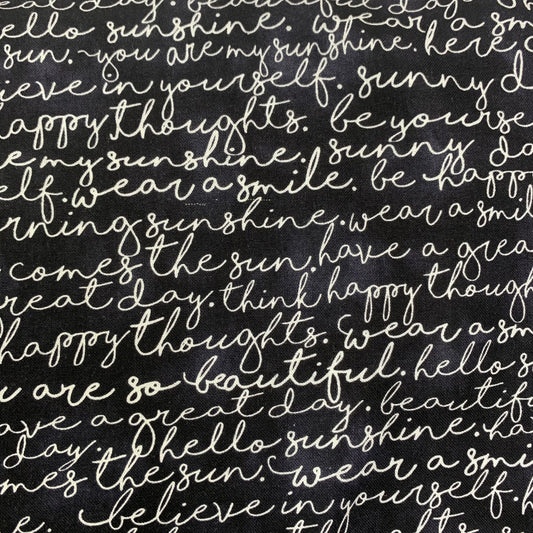 great day. beautiful day.
hello sunshine. wear a sm
sun. you are my sunshine. here
lieve in yourself. sunny d
happy thoughts. be yourse
e my sunshine. sunny da
elf. wear a smile. be happ
rning sunshine. wear a smil
comes the sun. have a grea
reat day. think happy though
happy thoughts. wear a sm
u are so beautiful. hello s
ave a great day. beautif
day. hello sunshine. ha
mes the sun. wear a smi
believe in yourself. h